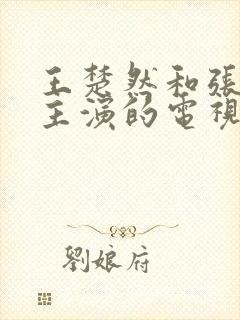 王楚然和張
主演的電視
劉娘府